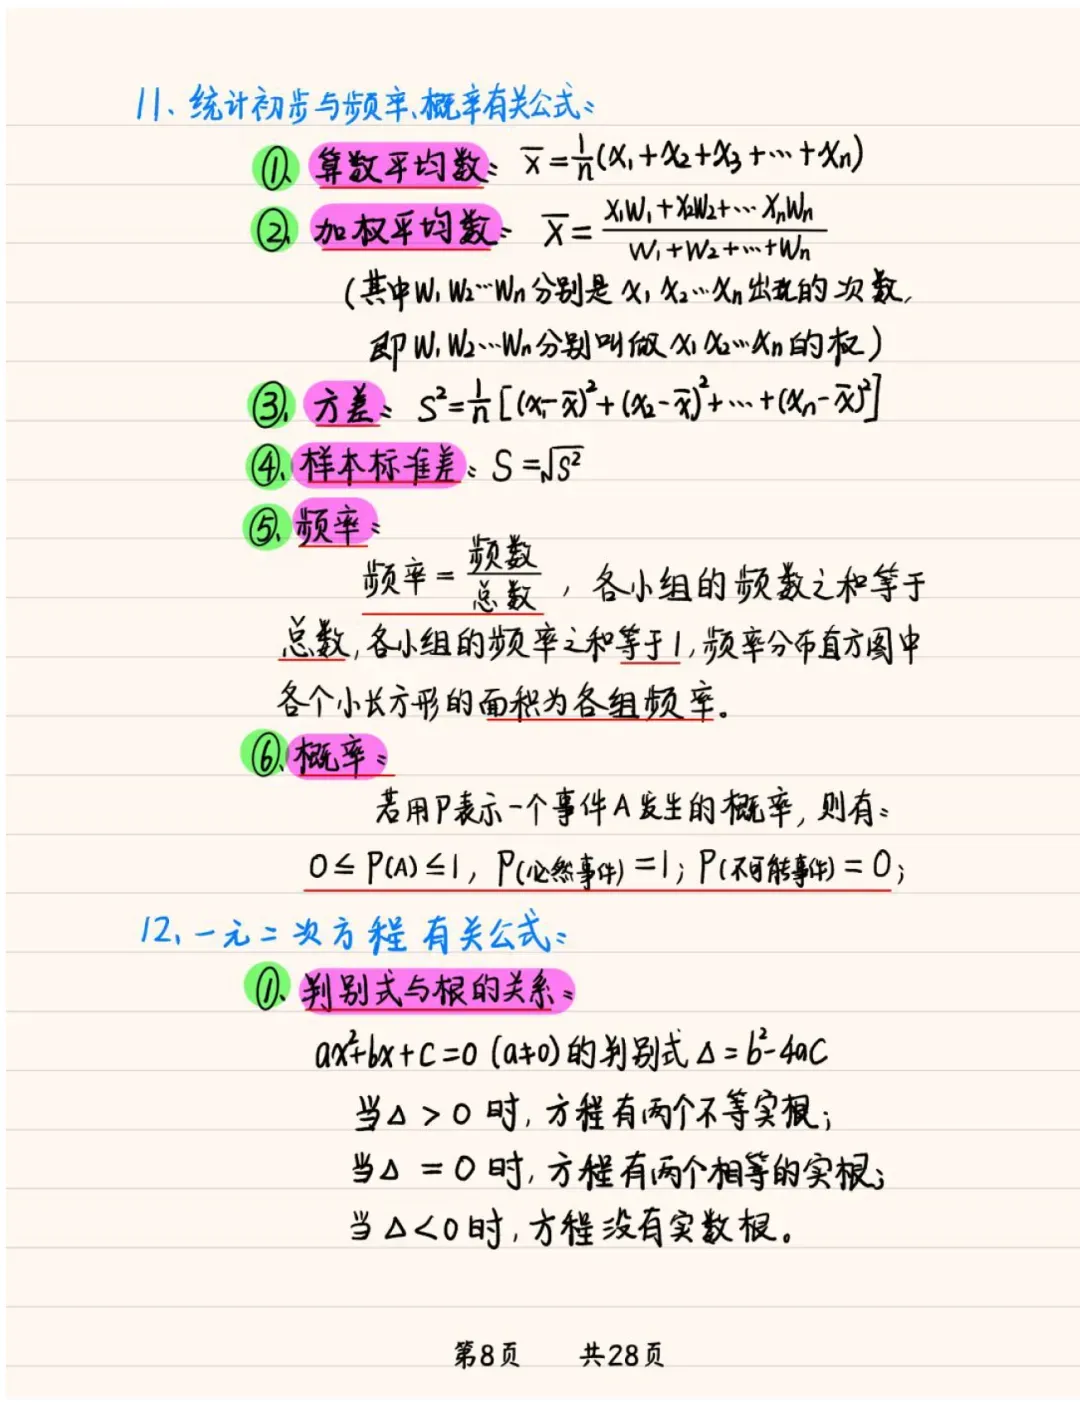 11、统计初步与频率、概率有关公式:
①、算数平均数: x̄=1/n(x₁+x₂+x₃+…+xₙ)
②、加权平均数: x̄=(x₁w₁+x₂w₂+…xₙwₙ)/(w₁+w₂+…+wₙ)
(其中w₁w₂…wₙ分别是x₁x₂…xₙ出现的次数,
即w₁w₂…wₙ分别叫做x₁x₂…xₙ的权)
③、方差: S²=1/n[(x₁-x̄)²+(x₂-x̄)²+…+(xₙ-x̄)²]
④、样本标准差: S=√S²
⑤、频率:
频率=频数/总数, 各小组的频数之和等于
总数,各小组的频率之和等于1,频率分布直方图中
各个小长方形的面积为各组频率。
⑥、概率:
若用P表示一个事件A发生的概率,则有:
0≤P(A)≤1, P(必然事件)=1; P(不可能事件)=0;
12、一元二次方程有关公式:
①、判别式与根的关系:
ax²+bx+c=0 (a≠0)的判别式△=b²-4ac
当△>0时,方程有两个不等实根;
当△=0时,方程有两个相等的实根;
当△<0时,方程没有实数根。
第8页 共28页